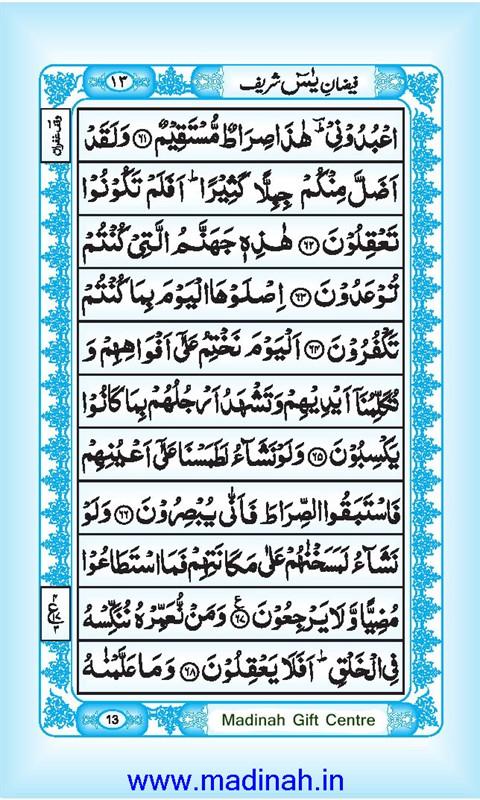 فیضانِ یٰسٓ شریف
١٣
وقف غفران
اعْبُدُوْنِیْ ؕؔ هٰذَا صِرَاطٌ مُّسْتَقِیْمٌ ﴿۶۱﴾ وَ لَقَدْ
اَضَلَّ مِنْكُمْ جِبِلًّا كَثِیْرًا ؕ اَفَلَمْ تَكُوْنُوْا
تَعْقِلُوْنَ ﴿۶۲﴾ هٰذِهٖ جَهَنَّمُ الَّتِیْ كُنْتُمْ
تُوْعَدُوْنَ ﴿۶۳﴾ اِصْلَوْهَا الْیَوْمَ بِمَا كُنْتُمْ
تَكْفُرُوْنَ ﴿۶۴﴾ اَلْیَوْمَ نَخْتِمُ عَلٰۤی اَفْوَاهِهِمْ وَ
تُكَلِّمُنَاۤ اَیْدِیْهِمْ وَ تَشْهَدُ اَرْجُلُهُمْ بِمَا كَانُوْا
یَكْسِبُوْنَ ﴿۶۵﴾ وَ لَوْ نَشَآءُ لَطَمَسْنَا عَلٰۤی اَعْیُنِهِمْ
فَاسْتَبَقُوا الصِّرَاطَ فَاَنّٰی یُبْصِرُوْنَ ﴿۶۶﴾ وَ لَوْ
نَشَآءُ لَمَسَخْنٰهُمْ عَلٰی مَكَانَتِهِمْ فَمَا اسْتَطَاعُوْا
مُضِیًّا وَّ لَا یَرْجِعُوْنَ ﴿۶۷﴾ وَ مَنْ نُّعَمِّرْهُ نُنَكِّسْهُ
فِی الْخَلْقِ ؕ اَفَلَا یَعْقِلُوْنَ ﴿۶۸﴾ وَ مَا عَلَّمْنٰهُ
13
Madinah Gift Centre
www.madinah.in